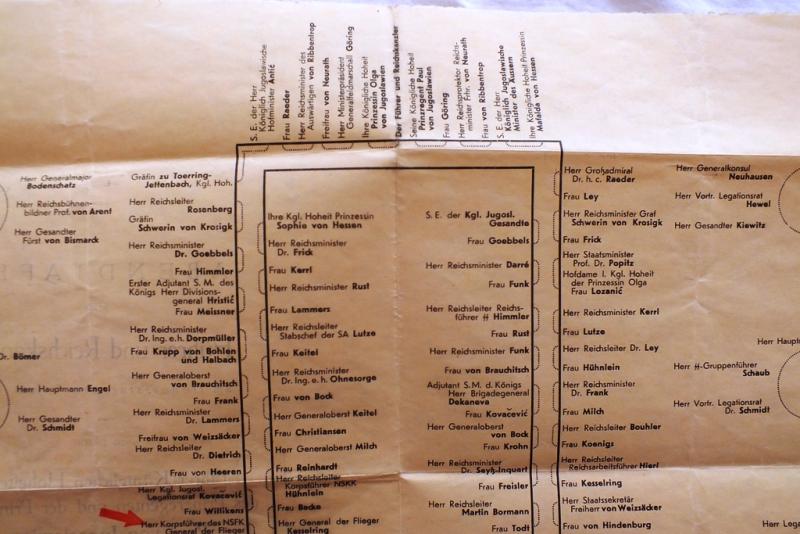 S. E. der Herr
Königlich Jugoslawische
Hofminister Antić
Frau Raeder
Herr Reichsminister des
Auswärtigen von Ribbentrop
Freifrau von Neurath
Herr Ministerpräsident
Generalfeldmarschall Göring
Ihre Königliche Hoheit
Prinzessin Olga
von Jugoslawien
Der Führer und Reichskanzler
Seine Königliche Hoheit
Prinzregent Paul
von Jugoslawien
Frau Göring
Herr Reichsprotektor Reichs-
minister Frhr. von Neurath
Frau von Ribbentrop
S. E. der Herr
Königlich Jugoslawische
Minister des Äussern
Ihre Königliche Hoheit Prinzessin
Mafalda von Hessen
Herr Generalmajor
Bodenschatz
Herr Reichsbühnen-
bildner Prof. von Arent
Herr Gesandter
Fürst von Bismarck
Dr. Bömer
Herr Hauptmann Engel
Herr Gesandter
Dr. Schmidt
Gräfin zu Toerring-
Jettenbach, Kgl. Hoh.
Herr Reichsleiter
Rosenberg
Gräfin
Schwerin von Krosigk
Herr Reichsminister
Dr. Goebbels
Frau Himmler
Erster Adjutant S. M. des
Königs Herr Divisions-
general Hristić
Frau Meissner
Herr Reichsminister
Dr. Ing. e.h. Dorpmüller
Frau Krupp von Bohlen
und Halbach
Herr Generaloberst
von Brauchitsch
Frau Frank
Herr Reichsminister
Dr. Lammers
Freifrau von Weizsäcker
Herr Reichsleiter
Dr. Dietrich
Frau von Heeren
Herr Kgl. Jugosl.
Legationsrat Kovačević
Frau Willikens
Herr Korpsführer des NSFK
General der Flieger
Ihre Kgl. Hoheit Prinzessin
Sophie von Hessen
Herr Reichsminister
Dr. Frick
Frau Kerrl
Herr Reichsminister Rust
Frau Lammers
Herr Reichsleiter
Stabschef der SA Lutze
Frau Keitel
Herr Reichsminister
Dr. Ing. e. h. Ohnesorge
Frau von Bock
Herr Generaloberst Keitel
Frau Christiansen
Herr Generaloberst Milch
Frau Reinhardt
Herr Reichsleiter
Korpsführer NSKK
Hühnlein
Frau Backe
Herr General der Flieger
Kesselring
S. E. der Kgl. Jugosl.
Gesandte
Frau Goebbels
Herr Reichsminister Darré
Frau Funk
Herr Reichsleiter Reichs-
führer ᛋᛋ Himmler
Frau Rust
Herr Reichsminister Funk
Frau von Brauchitsch
Adjutant S.M. d. Königs
Herr Brigadegeneral
Dekaneva
Frau Kovačević
Herr Generaloberst
von Bock
Frau Krohn
Herr Reichsminister
Dr. Seyß-Inquart
Frau Freisler
Herr Reichsleiter
Martin Bormann
Frau Todt
Herr Großadmiral
Dr. h. c. Raeder
Frau Ley
Herr Reichsminister Graf
Schwerin von Krosigk
Frau Frick
Herr Staatsminister
Prof. Dr. Popitz
Hofdame I. Kgl. Hoheit
der Prinzessin Olga
Frau Lozanić
Herr Reichsminister Kerrl
Frau Lutze
Herr Reichsleiter Dr. Ley
Frau Hühnlein
Herr Reichsminister
Dr. Frank
Frau Milch
Herr Reichsleiter Bouhler
Frau Koenigs
Herr Reichsleiter
Reichsarbeitsführer Hierl
Frau Kesselring
Herr Staatssekretär
Freiherr von Weizsäcker
Frau von Hindenburg
Herr Generalkonsul
Neuhausen
Herr Vortr. Legationsrat
Hewel
Herr Gesandter Kiewitz
Herr Haupt
Herr ᛋᛋ-Gruppenführer
Schaub
Herr Vortr. Legationsrat
Dr. Schmidt